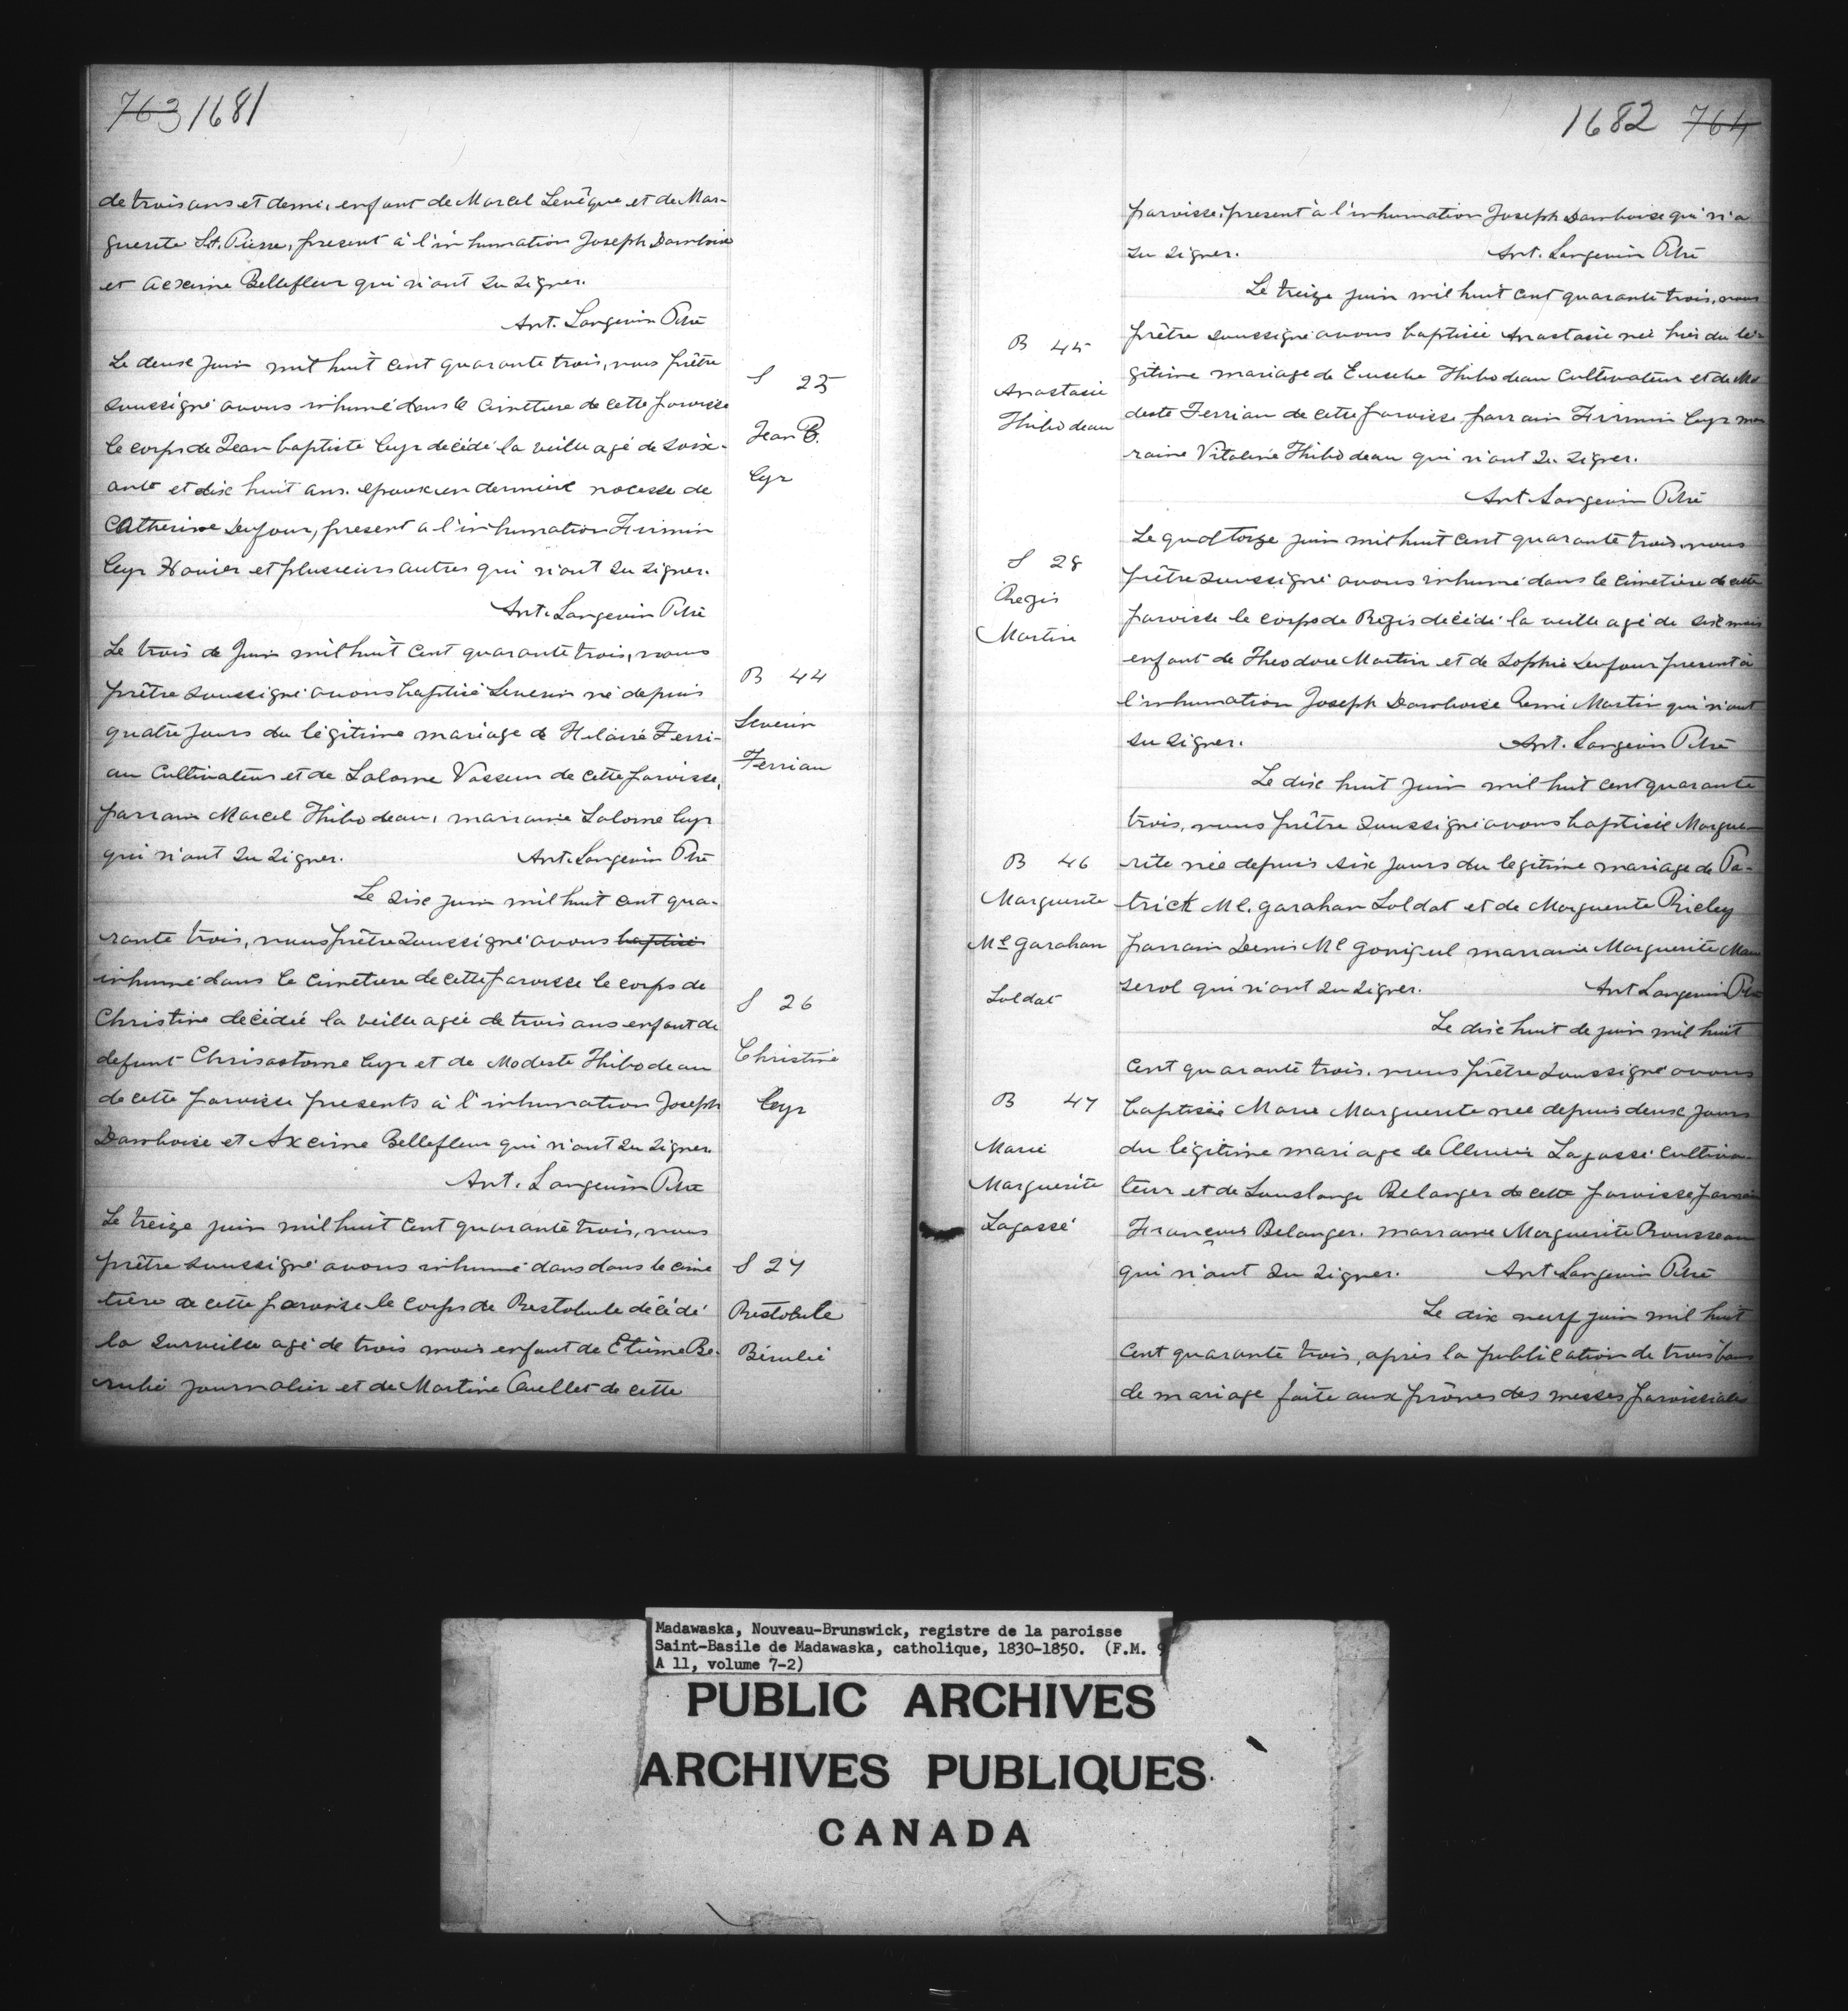 763 1681
de trois ans et demi, enfant de Marcel Levêque et de Mar-
guerite St. Pierre, present à l'inhumation Joseph Damboise
et Acexime Bellefleur qui n'ont su signer.
Ant. Langevin Ptre
Le deux juin mil huit cent quarante trois, nous prêtre
soussigné avons inhumé dans le cimetiere de cette paroisse
le corps de Jean baptiste Cyr décédé la veille agé de soix-
ante et dix huit ans. epoux en derniere nocesse de
Catherine Dufour, present a l'inhumation Firmin
Cyr Xavier et plusieurs autres qui n'ont su signer.
Ant. Langevin Ptre
S 25
Jean B.
Cyr
Le trois de Juin mil huit cent quarante trois, nous
prêtre soussigné avons baptisé Severin né depuis
quatre jours du légitime mariage de Hilaire Ferri-
au Cultivateur et de Salome Vasseur de cette paroisse,
parrain Marcel Thibodeau, marraine Salome Cyr
qui n'ont su signer. Ant. Langevin Ptre
B 44
Severin
Ferriau
Le six juin mil huit cent qua-
rante trois, nous prêtre soussigné avons baptisé
inhumé dans le cimetiere de cette paroisse le corps de
Christine décédée la veille agée de trois ans enfant de
defunt Chrisostome Cyr et de Modeste Thibodeau
de cette paroisse presents à l'inhumation Joseph
Damboise et Axcime Bellefleur qui n'ont su signer.
Ant. Langevin Ptre
S 26
Christine
Cyr
Le treize juin mil huit cent quarante trois, nous
prêtre soussigné avons inhumé dans dans le cime
tière de cette paroisse le corps de Restobule décédé
la surveille agé de trois mois enfant de Etienne Be-
rubé journalier et de Martine Ouellet de cette
S 27
Restobule
Bérubé
1682 764
paroisse, present à l'inhumation Joseph Damboise qui n'a
su signer. Ant. Langevin Ptre
Le treize juin mil huit cent quarante trois, nous
prêtre soussigné avons baptisée Anastasie née hier du lé-
gitime mariage de Eusebe Thibodeau Cultivateur et de Mo
deste Ferriau de cette paroisse, parrain Firmin Cyr mar
raine Vitaline Thibodeau qui n'ont su signer.
Ant Langevin Ptre
B 45
Anastasie
Thibodeau
Le quattorze juin mil huit cent quarante trois, nous
prêtre soussigné avons inhumé dans le cimetiere de cette
paroisse le corps de Regis décédé la veille agé de six mois
enfant de Theodore Martin et de Sophie Dufour present à
l'inhumation Joseph Damboise Remi Martin qui n'ont
su signer. Ant. Langevin Ptre
S 28
Regis
Martin
Le dix huit juin mil huit cent quarante
trois, nous prêtre soussigné avons baptisée Margue-
rite née depuis six jours du legitime mariage de Pa-
trick Mc. garahan Soldat et de Marguerite Rieley
parrain Denis Mc gonigul marraine Marguerite Man
serol qui n'ont su signer. Ant Langevin Ptre
B 46
Marguerite
Mc garahan
Soldat
Le dix huit de juin mil huit
cent quarante trois. nous prêtre soussigné avons
baptisée Marie Marguerite née depuis deux jours
du légitime mariage de Lagassé cultiva-
teur et de Souslange Belanger de cette paroisse parrain
François Belanger. marraine Marguerite Rousseau
qui n'ont su signer. Ant Langevin Ptre
B 47
Marie
Marguerite
Lagassé
Le dix neuf juin mil huit
cent quarante trois, après la publication de trois bans
de mariage faite aux prônes des messes paroissiales
Madawaska, Nouveau-Brunswick, registre de la paroisse
Saint-Basile de Madawaska, catholique, 1830-1850. (F.M. 9
A 11, volume 7-2)
PUBLIC ARCHIVES
ARCHIVES PUBLIQUES
CANADA